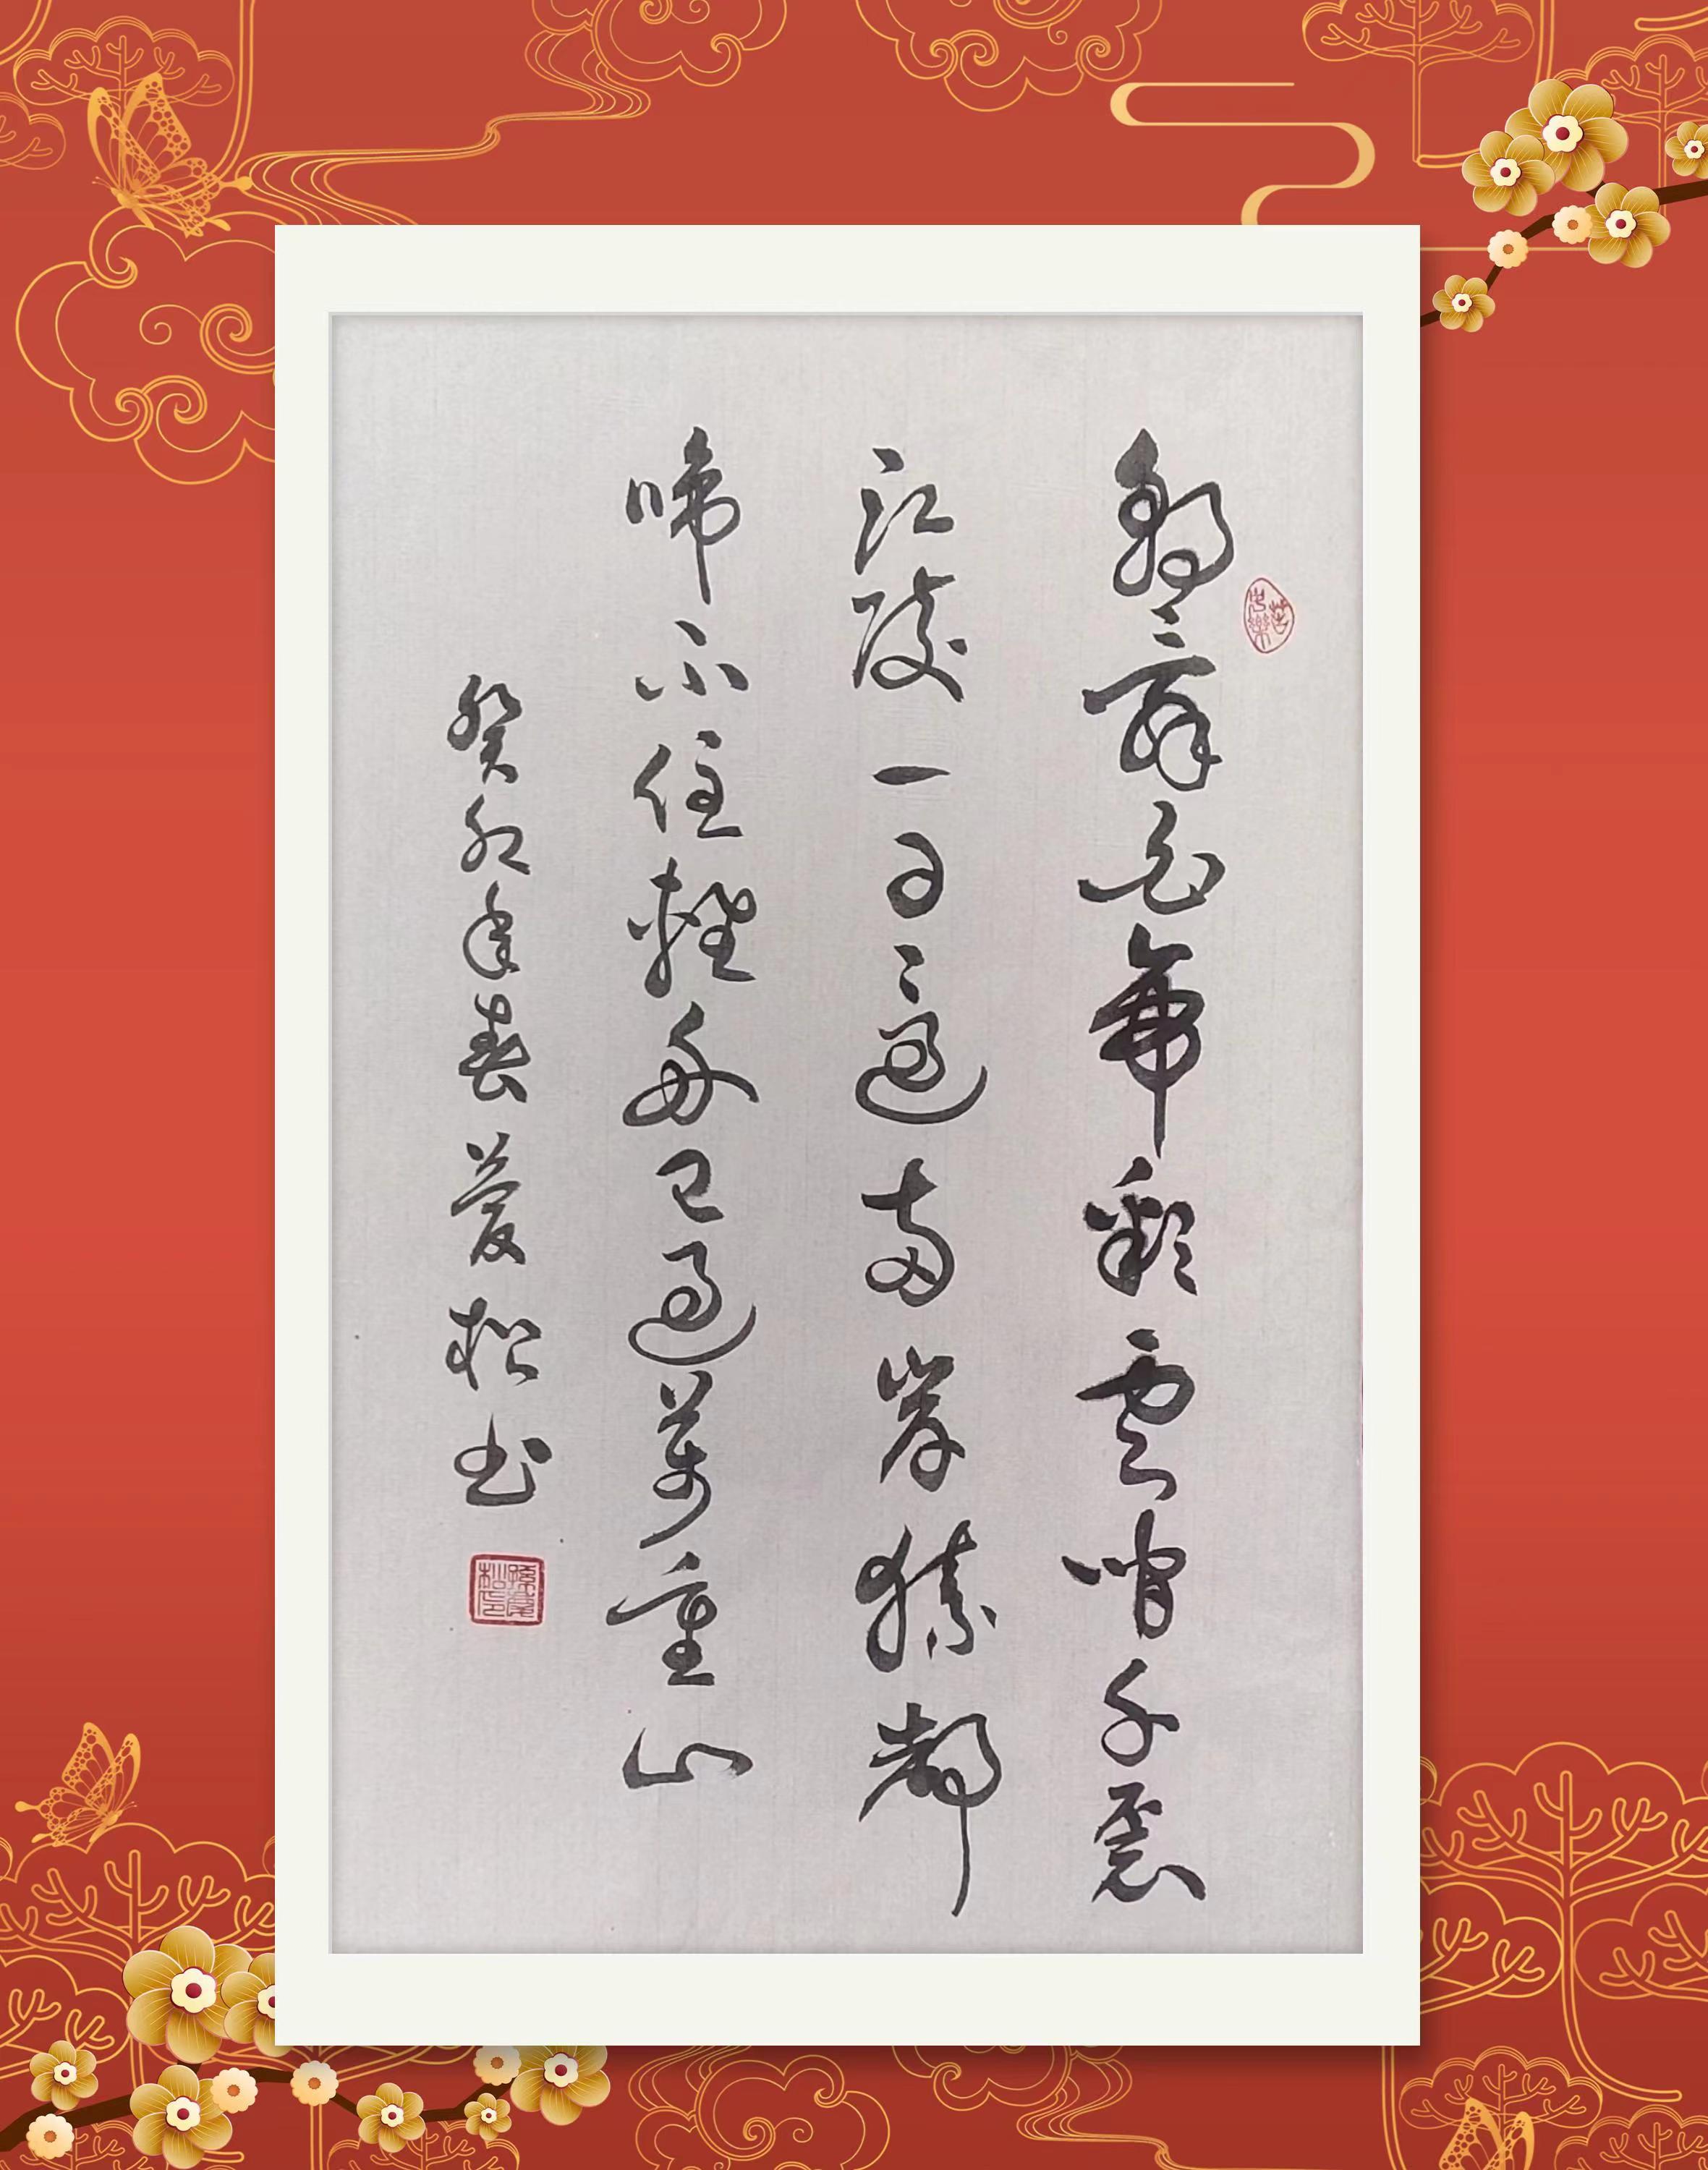 朝辭白帝彩雲間千裏
江陵一日還兩岸猿聲
啼不住輕舟已過萬重山
癸卯年春爱松书